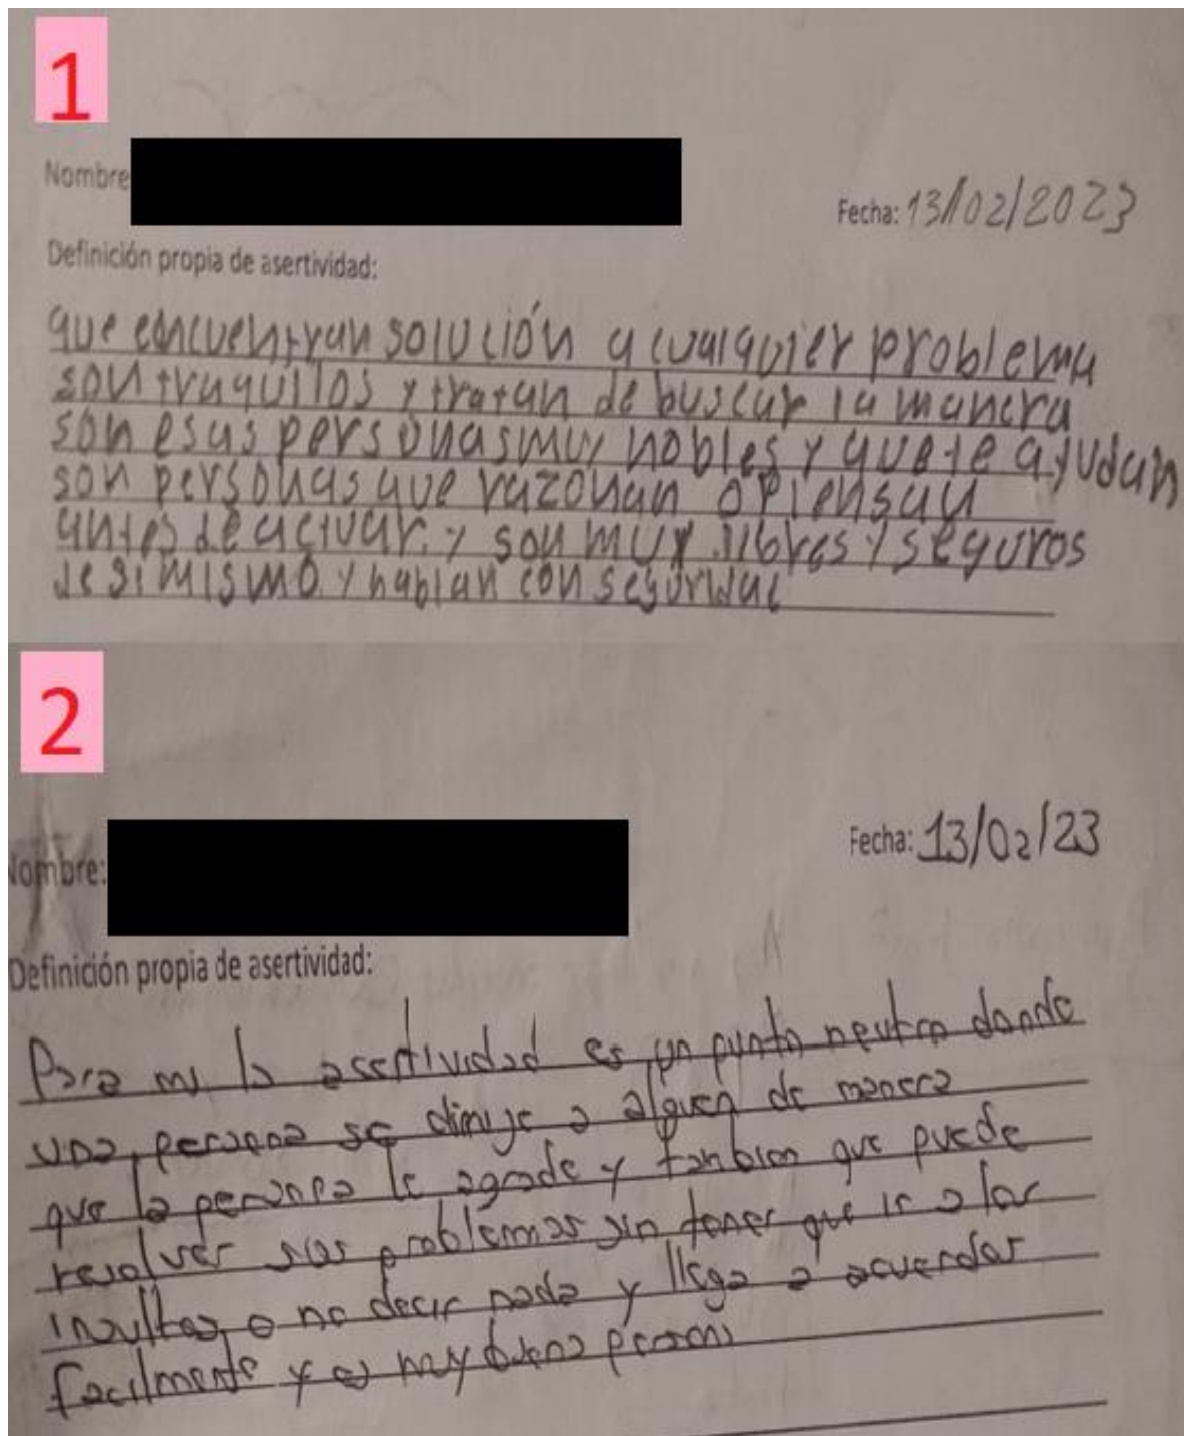 1
Nombre
Fecha: 13/02/2023
Definición propia de asertividad:
que encuentran solución a cualquier problema
son traquilos y tratan de buscar la manera
son esas personas muy nobles y que te ayudan
son personas que razonan o piensan
antes de actuar. y son muy libres y seguros
de si mismo y hablan con seguridad
2
Nombre:
Fecha: 13/02/23
Definición propia de asertividad:
Para mi la asertividad es un punto neutro donde
una persona se dirije a alguen de manera
que la persona le agrade y tanbien que puede
resolver sus problemas sin tener que ir a los
insultos o no decir nada y llega a acuerdos
facilmente y es muy buena persona